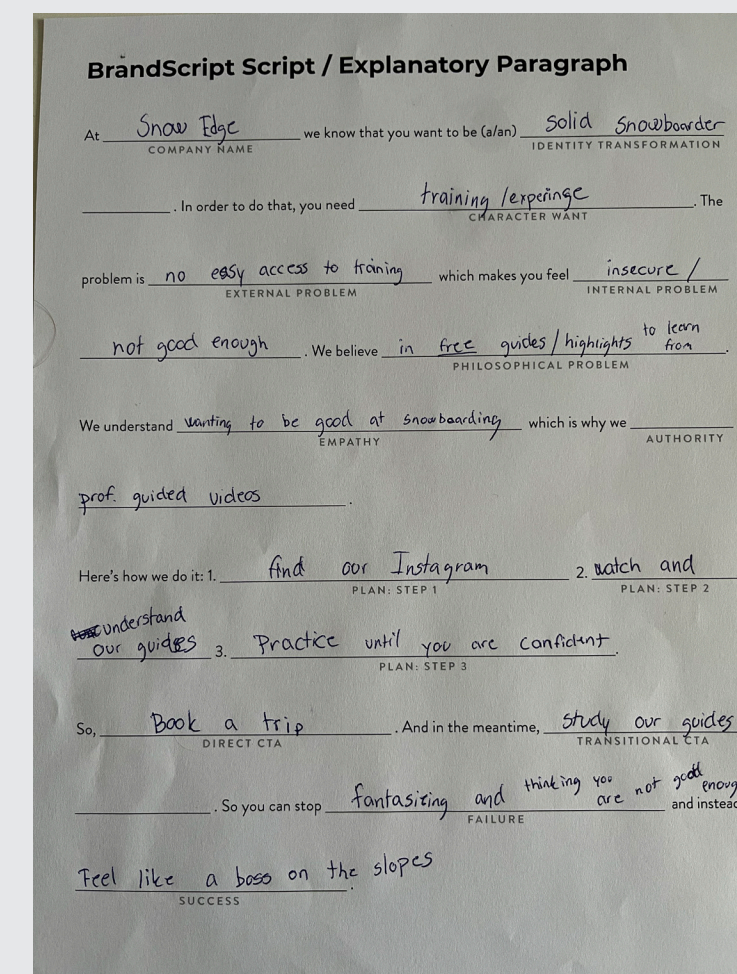 BrandScript Script / Explanatory Paragraph
At Snow Edge we know that you want to be (a/an) solid Snowboarder
COMPANY NAME IDENTITY TRANSFORMATION
. In order to do that, you need training /experinge . The
CHARACTER WANT
problem is no easy access to training which makes you feel insecure /
EXTERNAL PROBLEM INTERNAL PROBLEM
not good enough . We believe in free guides / highlights to learn from .
PHILOSOPHICAL PROBLEM
We understand wanting to be good at snowboarding which is why we
EMPATHY AUTHORITY
prof. guided videos .
Here's how we do it: 1. find our Instagram 2. watch and
PLAN: STEP 1 PLAN: STEP 2
understand
our guides 3. Practice until you are confident .
PLAN: STEP 3
So, Book a trip . And in the meantime, study our guides
DIRECT CTA TRANSITIONAL CTA
. So you can stop fantasizing and thinking you are not good enoug and instead
FAILURE
Feel like a boss on the slopes .
SUCCESS